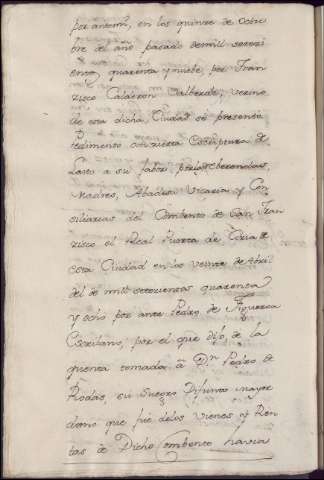 por antemi, en los quinze de octu
bre del año pasado de mill setezi
entos, quarenta y nuebe, por Fran
zisco Calderon Valberde, vezino
de esta dicha, Ciudad se presento
Pedimento con zierta Escriptura de
Lasto a su fabor, por las Reberendas,
Madres, Abadesa Vicaria y Con
siliarias del Combento de San Fran
zisco el Real Puerta de Coria de
esta Ciudad en los veinte de Abril
del de mil setezientos quarenta
y ocho por ante Pedro de Figueroa
Escribano, por el que dijo, de la
quenta tomada, â Dn. Pedro, de
Rodas, su Suegro Difunto mayor
domo que fue delos Vienes y Ren
tas de Dicho Combento havia